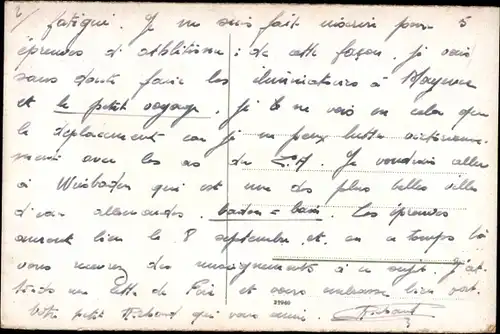 2/ fatigué. Je me suis fait inscrire pour 5
épreuves d'athlétisme : de cette façon. Je vais
sans doute faire les éliminatoires à Mayence
et le petit voyage. Je ne vois en cela que
le déplacement car je ne peux lutter
avec les as de Je voudrais aller
à Wiesbaden qui est une des plus belles villes
d'eau allemandes. baden-bain. Les épreuves
auront lieu le 8 septembre et en ce temps là
vous aurez des renseignements à ce sujet. J'at-
tends une lettre de et vous embrasse bien
votre petit Richard qui vous aime. Richard
21940